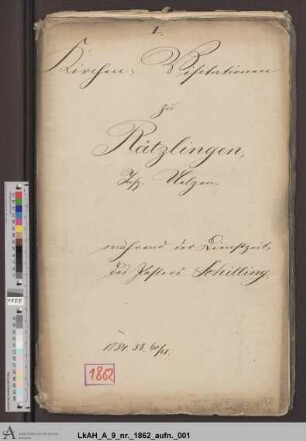 I.
Kirchen-Visitationen
zu
Rätzlingen,
Insp. Uelzen.
während der Dienstzeit
des Pastors Schilling.
1862
LkAH_A_9_nr._1862_aufn._001